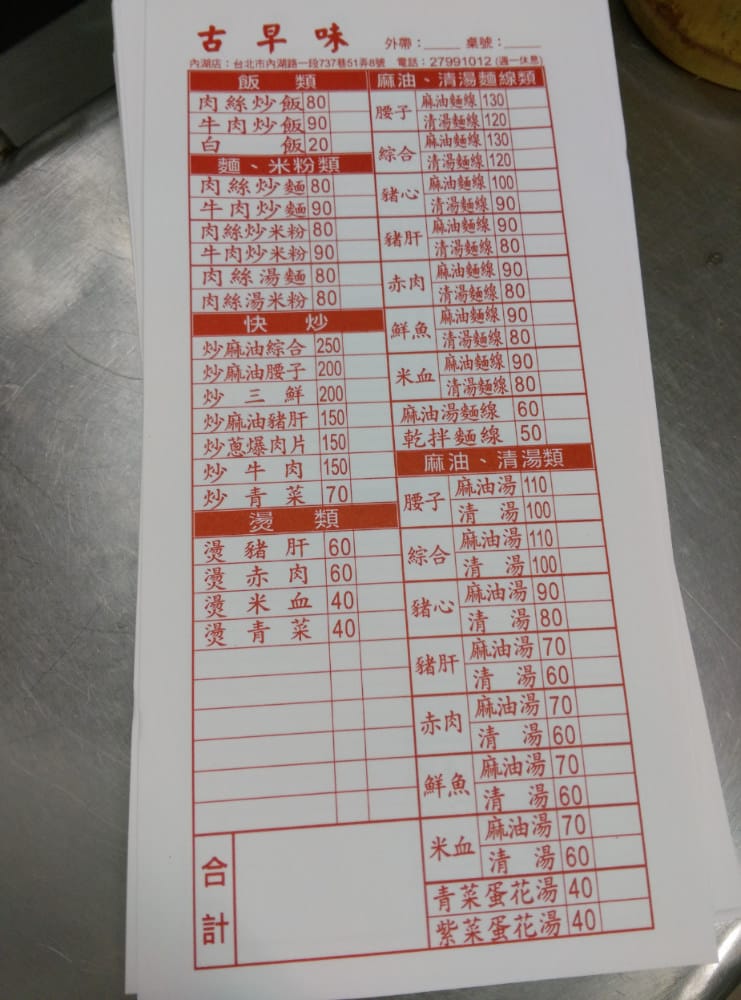 古早味 外帶：____ 桌號：____
內湖店：台北市內湖路一段737巷51弄8號 電話：27991012 (週一休息
飯 類
肉絲炒飯 80
牛肉炒飯 90
白 飯 20
麵、米粉類
肉絲炒麵 80
牛肉炒麵 90
肉絲炒米粉 80
牛肉炒米粉 90
肉絲湯麵 80
肉絲湯米粉 80
快 炒
炒麻油綜合 250
炒麻油腰子 200
炒三鮮 200
炒麻油豬肝 150
炒蔥爆肉片 150
炒牛肉 150
炒青菜 70
燙 類
燙豬肝 60
燙赤肉 60
燙米血 40
燙青菜 40
合計
麻油、清湯麵線類
腰子 麻油麵線 130
清湯麵線 120
綜合 麻油麵線 130
清湯麵線 120
豬心 麻油麵線 100
清湯麵線 90
豬肝 麻油麵線 90
清湯麵線 80
赤肉 麻油麵線 90
清湯麵線 80
鮮魚 麻油麵線 90
清湯麵線 80
米血 麻油麵線 90
清湯麵線 80
麻油湯麵線 60
乾拌麵線 50
麻油、清湯類
腰子 麻油湯 110
清 湯 100
綜合 麻油湯 110
清 湯 100
豬心 麻油湯 90
清 湯 80
豬肝 麻油湯 70
清 湯 60
赤肉 麻油湯 70
清 湯 60
鮮魚 麻油湯 70
清 湯 60
米血 麻油湯 70
清 湯 60
青菜蛋花湯 40
紫菜蛋花湯 40